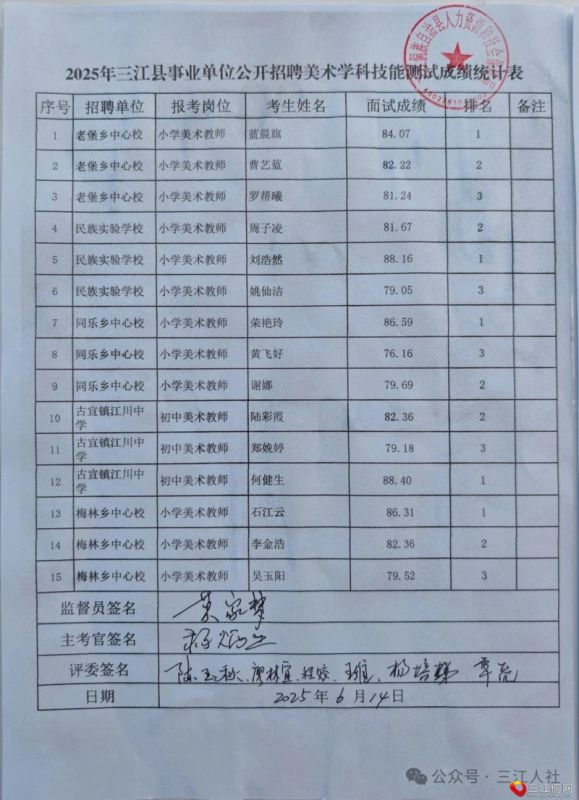 族自治县人力资源和社会
2025年三江县事业单位公开招聘美术学科技能测试成绩统计表
序号 招聘单位 报考岗位 考生姓名 面试成绩 排名 备注
1 老堡乡中心校 小学美术教师 蓝晨旗 84.07 1
2 老堡乡中心校 小学美术教师 曹艺蓝 82.22 2
3 老堡乡中心校 小学美术教师 罗帮曦 81.24 3
4 民族实验学校 小学美术教师 周子凌 81.67 2
5 民族实验学校 小学美术教师 刘浩然 88.16 1
6 民族实验学校 小学美术教师 姚仙洁 79.05 3
7 同乐乡中心校 小学美术教师 荣艳玲 86.59 1
8 同乐乡中心校 小学美术教师 黄飞好 76.16 3
9 同乐乡中心校 小学美术教师 谢娜 79.69 2
10 古宜镇江川中学 初中美术教师 陆彩霞 82.36 2
11 古宜镇江川中学 初中美术教师 郑娩婷 79.18 3
12 古宜镇江川中学 初中美术教师 何健生 88.40 1
13 梅林乡中心校 小学美术教师 石江云 86.31 1
14 梅林乡中心校 小学美术教师 李金浩 82.36 2
15 梅林乡中心校 小学美术教师 吴玉阳 79.52 3
监督员签名
主考官签名
评委签名
日期 2025年6月14日
公众号·三江人社
三江侗网